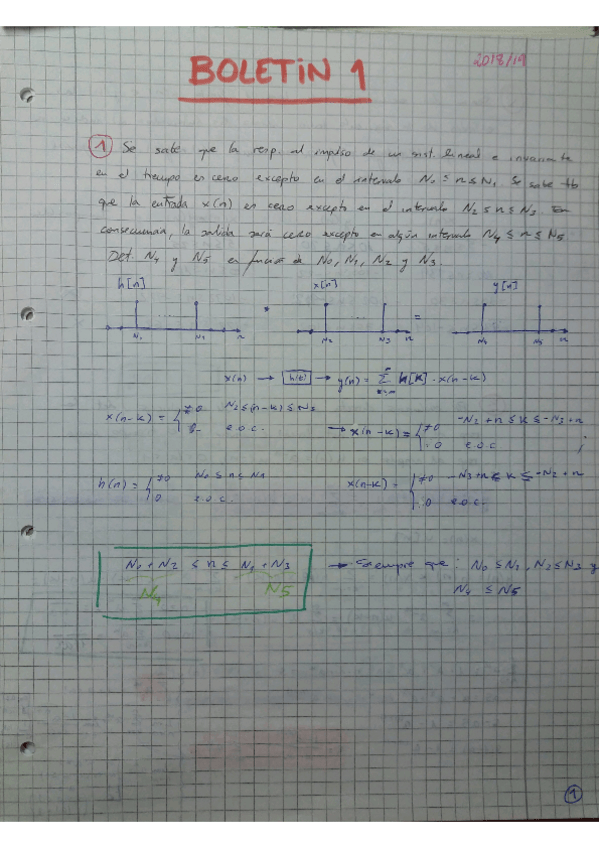 BOLETIN 1
2018/19
① Se sabe que la resp. al impulso de un sist. lineal e invariante
en el tiempo es cero excepto en el intervalo N0 ≤ n ≤ N1. Se sabe tb
que la entrada x(n) es cero excepto en el intervalo N2 ≤ n ≤ N3. En
consecuencia, la salida será cero excepto en algún intervalo N4 ≤ n ≤ N5.
Det. N4 y N5 en función de N0, N1, N2 y N3.
h[n] x[n] y[n]
* =
n N2 N3 n N4 N5 n
x(n) → h(t) → y(n) = Σ h[k] · x(n-k)
x(n-k) = { ≠0 N2 ≤ (n-k) ≤ N3 → x(n-k) = { ≠0 -N2 + n ≤ k ≤ -N3 + n
0 e.o.c. 0 e.o.c. ;
h(n) = { ≠0 N0 ≤ n ≤ N1 x(n-k) = { ≠0 -N3 + n ≤ k ≤ -N2 + n
0 e.o.c. 0 e.o.c.
N0 + N2 ≤ n ≤ N1 + N3 → Siempre que: N0 ≤ N1, N2 ≤ N3 y
N4 N5 N4 ≤ N5
1